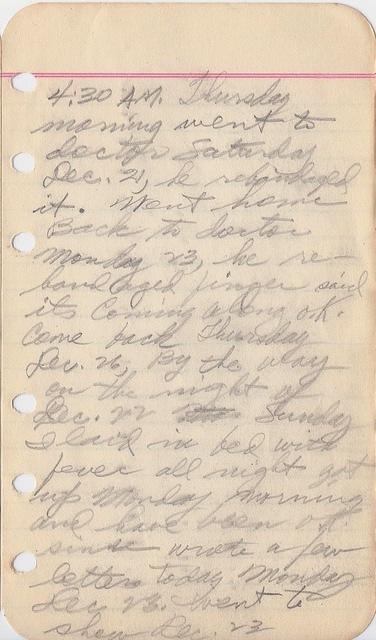 4:30 A.M. Thursday
morning went to
doctor Saturday
Dec. 21, he rebandaged
it. Went home
Back to doctor
Monday 23, he re-
bandaged finger said
its coming along ok.
come back Thursday
Dec. 26, By the way
on the night of
Dec. 22 Sunday
I laid in bed with
fever all night got
up Monday morning
and have been off
since wrote a few
letters today Monday
Dec 23. Went to
show Dec. 23